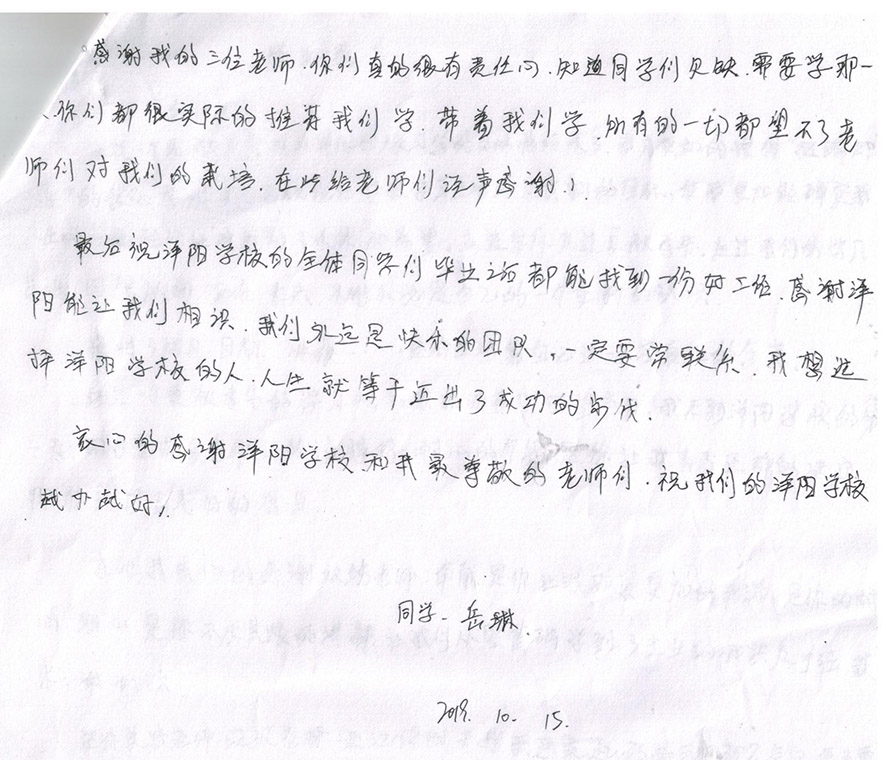 感谢我的三位老师.你们真的很有责任心.知道同学们欠缺.需要学那一
、你们都很实际的推荐我们学.带着我们学.所有的一切都望不了老
师们对我们的栽培.在此给老师们说声感谢!.
最后祝泽阳学校的全体同学们毕业之后都能找到一份好工作.感谢泽
阳能让我们相识.我们永远是快乐的团队.一定要常联系.我想选
择泽阳学校的人.人生就等于迈出了成功的步伐.
衷心的感谢泽阳学校和我最尊敬的老师们.祝我们的泽阳学校
越办越好,
同学-岳
2019. 10. 15.